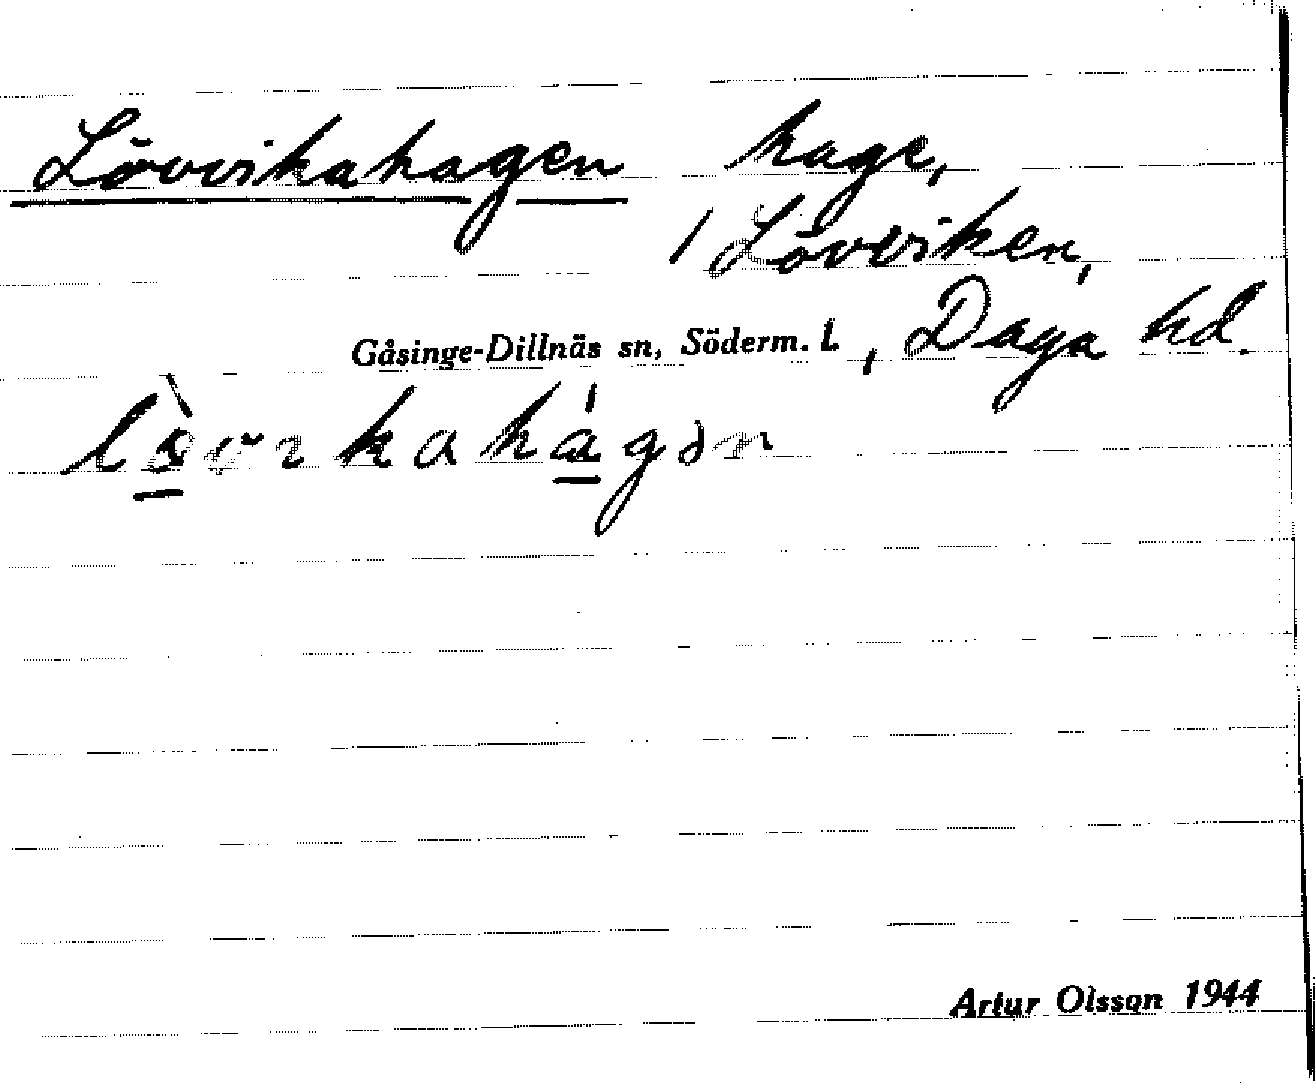 Lövvikahagen hage,
/ Lövviken,
Gåsinge-Dillnäs sn, Söderm. l. , Daga hd.
Artur Olsson 1944